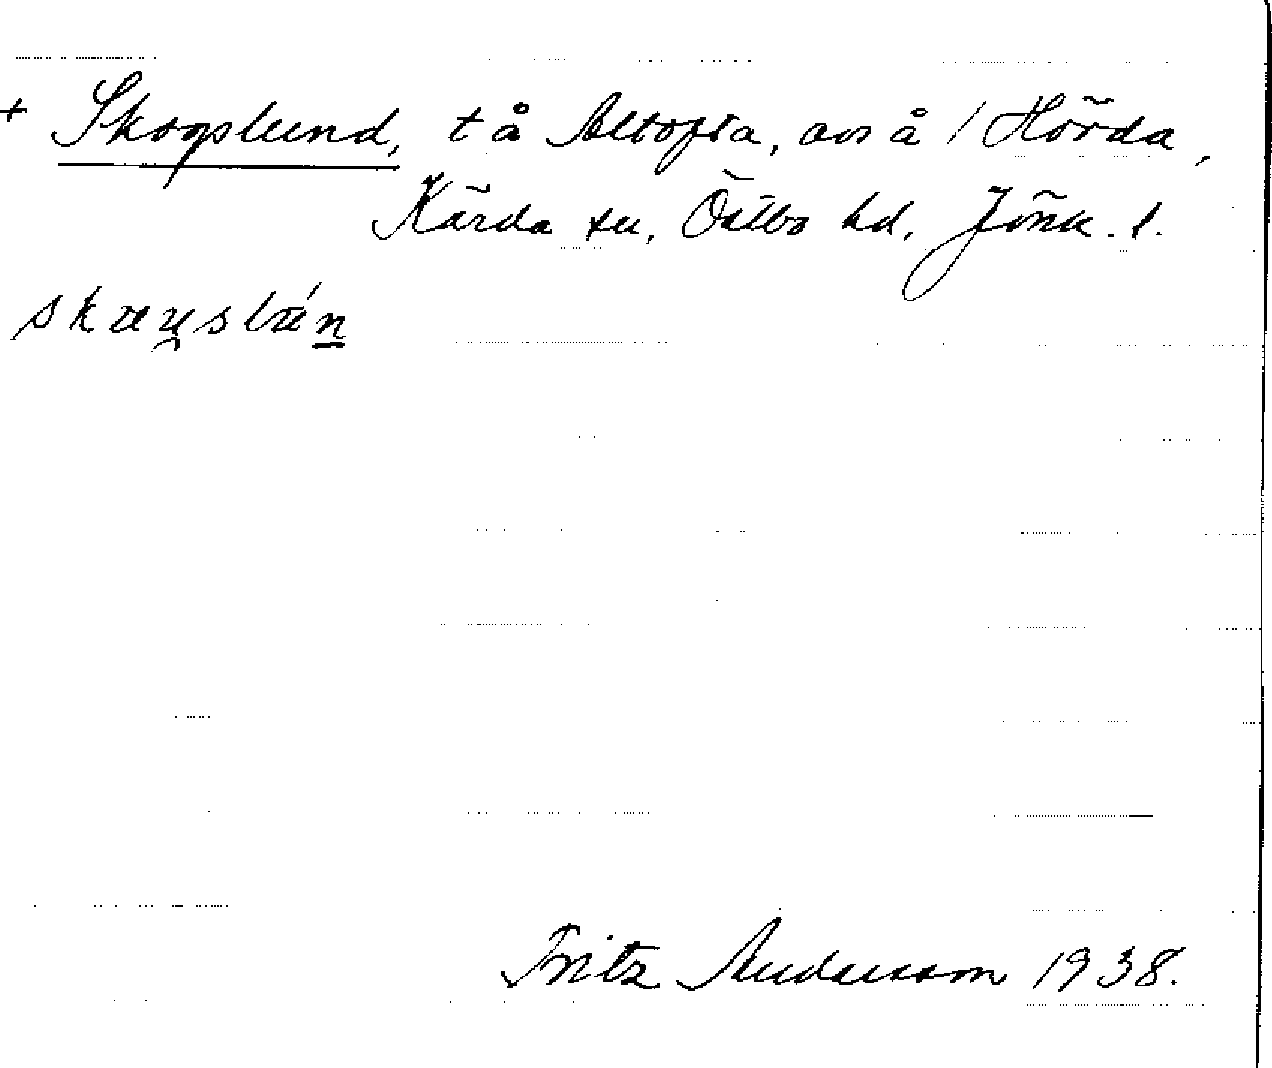 + Skogslund, t å Altofta, avs å 1 Hörda,
Kärda sn, Östbo hd, Jönk. l.
Fritz Andersson 1938.